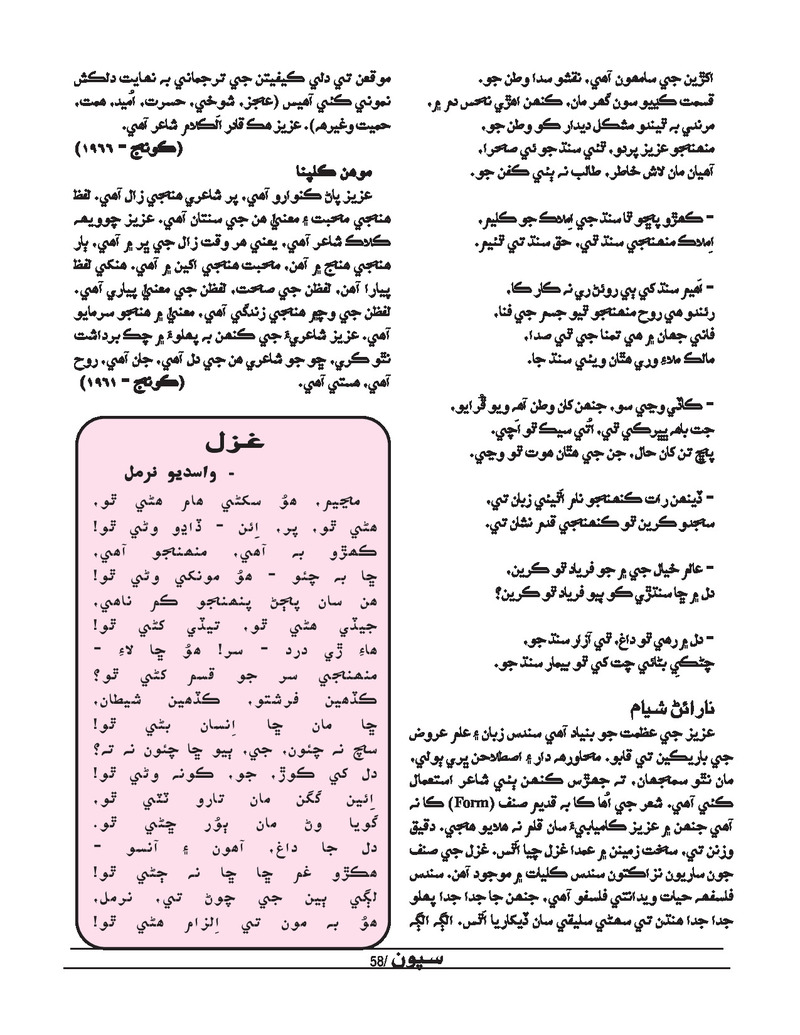 اکڙين جي سامهون آهي، نقشو سدا وطن جو.
قسمت ڪڍيو سون گهر مان، ڪنهن اهڙي نحس دم ۾،
مرندي به ٿيندو مشڪل ديدار ڪو وطن جو،
منهنجو عزيز پردو، ٿئي سنڌ جو ئي صحرا،
آهيان مان لاش خاطر، طالب نه ٻئي ڪفن جو.
– ڪهڙو پڇو ٿا سنڌ جي اِملاڪ جو ڪليم،
اِملاڪ منهنجي سنڌ ٿي، حق سنڌ تي ٿئيم.
– اَهيم سنڌ کي ٻي روئڻ ري نه ڪار ڪا،
رئندو هي روح منهنجو ٿيو جسم جي فنا،
فاني جهان ۾ هي تمنا جي ٿي صدا،
مالڪ ملاءِ وري هٿان ويئي سنڌ جا.
– ڪاٿي وڃي سو، جنهن کان وطن آهه ويو ڦُرايو،
جت باهه ڀڙڪي ٿي، اُتي سيڪ ٿو اَچي.
پڇ تن کان حال، جن جي هٿان هوت ٿو وڃي.
– ڏينهن رات ڪنهنجو نام اٿئي زبان تي،
سجدو ڪرين ٿو ڪنهنجي قدم نشان تي.
– عالم خيال جي ۾ جو فرياد ٿو ڪرين،
دل ۾ ڇا سنڌڙي کو پيو فرياد ٿو ڪرين؟
– دل ۾ رهي ٿو داغ، ٿي آزار سنڌ جو،
چڻڪي بڻائي چت کي ٿو بيمار سنڌ جو.
نارائڻ شيام
عزيز جي عظمت جو بنياد آهي سندس زبان ۽ علم عروض
جي باريڪين تي قابو. محاورهه دار ۽ اصطلاحن ڀري ٻولي،
مان نٿو سمجهان، ته جهڙس ڪنهن ٻئي شاعر استعمال
ڪئي آهي. شعر جي اُها ڪا به قديم صنف (Form) ڪا نه
آهي جنهن ۾ عزيز ڪاميابيءَ سان قلم نه هلايو هجي. دقيق
وزنن تي، سخت زمينن ۾ عمدا غزل چيا اٿس. غزل جي صنف
جون ساريون نزاڪتون سندس ڪليات ۾ موجود آهن. سندس
فلسفهه حيات ويدانتي فلسفو آهي، جنهن جا جدا جدا پهلو
جدا جدا هنڌن تي سهڻي سليقي سان ڏيکاريا اٿس. الڳ الڳ
موقعن تي دلي ڪيفيتن جي ترجماني به نهايت دلڪش
نموني ڪئي آهيس (عجز، شوخي، حسرت، اُميد، همت،
حميت وغيرهه). عزيز هڪ قادر الڪلام شاعر آهي.
(ڪونج – ۱۹٦٦)
موهن ڪلپنا
عزيز پاڻ ڪنوارو آهي، پر شاعري هنجي زال آهي. لفظ
هنجي محبت ۽ معنيٰ هن جي سنتان آهي. عزيز چوويهه
ڪلاڪ شاعر آهي، يعني هر وقت زال جي ڀر ۾ آهي، ٻار
هنجي هنج ۾ آهن، محبت هنجي اکين ۾ آهي. هنکي لفظ
پيارا آهن، لفظن جي صحت، لفظن جي معنيٰ پياري آهي.
لفظن جي وچ ۾ هنجي زندگي آهي، معنيٰ ۾ هنجو سرمايو
آهي. عزيز شاعريءَ جي ڪنهن به پهلوءَ ۾ چڪ برداشت
نٿو ڪري، ڇو جو شاعري هن جي دل آهي، جان آهي، روح
آهي، هستي آهي. (ڪونج – ۱۹٦۱)
غزل
- واسديو نرمل
مڃيم، هوُ سکڻي هام هڻي ٿو،
هڻي ٿو، پر، اِئن – ڏاڍو وڻي ٿو!
ڪهڙو به آهي، منهنجو آهي،
ڇا به چئو – هوُ مونکي وڻي ٿو!
هن سان پڄڻ پنهنجو ڪم ناهي،
جيڏي هڻي ٿو، تيڏي کڻي ٿو!
هاءِ ڙي درد – سر! هوُ ڇا لاءِ –
منهنجي سر جو قسم کڻي ٿو؟
ڪڏهين فرشتو، ڪڏهين شيطان،
ڇا مان ڇا اِنسان بڻي ٿو!
سچ نه چئون، جي، ٻيو ڇا چئون نه ته؟
دل کي ڪوڙ، جو، ڪونه وڻي ٿو!
اِئين گگن مان تارو ٽٽي ٿو،
گويا وڻ مان ٻوُر ڇڻي ٿو.
دل جا داغ، آهون ۽ آنسو –
هڪڙو غم ڇا ڇا نه ڄڻي ٿو!
لڳي ٻين جي چوڻ تي، نرمل،
هوُ به مون تي اِلزام هڻي ٿو!
سپون /58